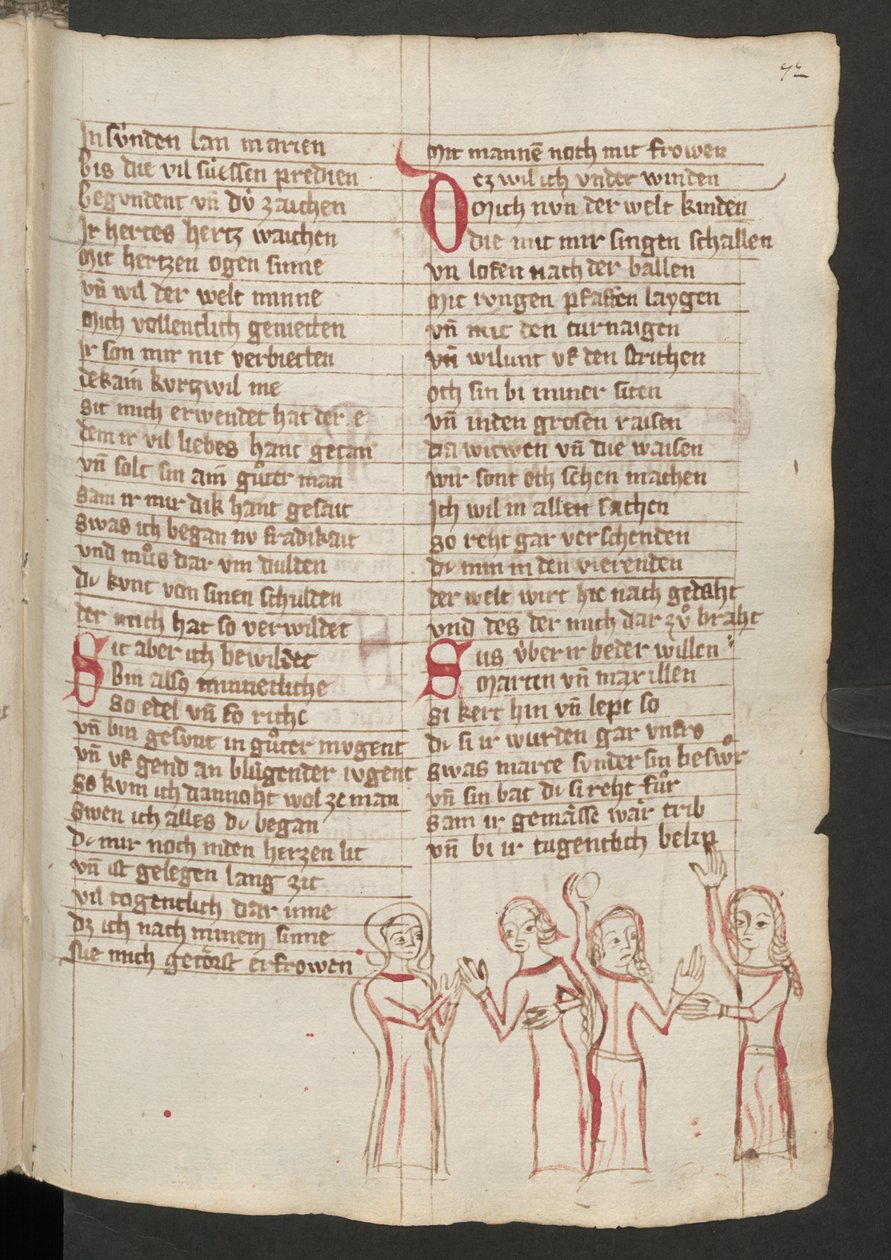 In sünden lan marien
bis die vil süessen predien
begundent vn̄ dv̓ zaichen
Ir hertes hertz waichen
Mit hertzen ogen sinne
vn̄ wil der welt minne
Mich vollentlich genietten
Ir son mir nit verbietten
dekain kvrtzwil me
sit mich erwendet hat der e
dem ir vil liebes hant getan
vn̄ solt sin ain gůter man
sam ir mir dik hant gesait
swas ich began nv fradikait
vnd můs dar vm dulden
dc kvnt von sinen schulden
der mich hat so verwildet
Sit aber ich bewildet
Bin also minnetliche
so edel vn̄ so riche
vn̄ bin gesvnt in gůter mvgent
vn̄ vf gend an blůgender ivgent
so kvm ich dannoht wol ze man
swen ich alles dc began
dc mir noch inden herzen lit
vn̄ ist gelegen lang zit
vil togentlich dar inne
dz ich nach minem sinne
sue mich getörst er frowen
Mit mannē noch mit frowen
Dez wil ich vnder winden
Mich nvn der welt kinden
die mit mir singen schallen
vn lofen nach der ballen
Mit ivngen pfaffen laygen
vn̄ mit den turnaigen
vn̄ wilunt vf den strichen
och sin bi miner siten
vn̄ inden grosen raisen
dia witwen vn̄ die waisen
wir sont och sehen machen
Ich wil in allen sachen
so reht gar verschenden
dc min in den vierenden
der welt wirt hie nach gedaht
vnd des der mich dar zů braht
Sus v̓ber ir beder willen
Martin vn̄ maxillen
si kert hin vn̄ lept so
dc si ir wurden gar vnfro
swas marce svnder sin beswůr
vn̄ sin bat dc si reht fůr
sam ir gemässe wär trib
vn̄ bi ir tugentlich belip